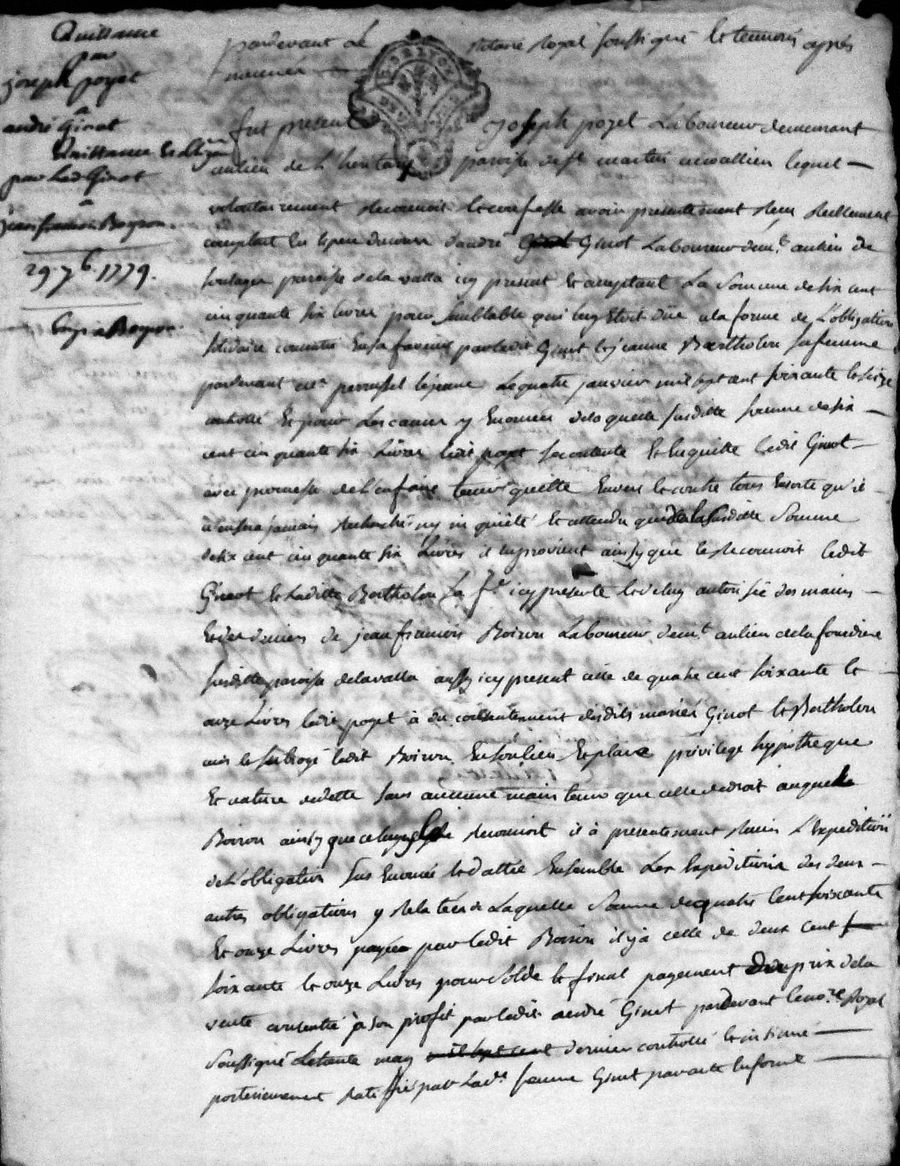 Quittance
par
joseph poyet
a
andré Ginot
Quittance et
par led Ginot
a
jean francois Boyron
29 7b. 1779.
Boyron
pardevant Le notaire Royal soussigné et temoins après
nommés
fut present joseph poyet Laboureur demeurant
au lieu de L' paroisse de st martin lequel
volontairement Reconnoit et confesse avoir presentement Reçu Réellement
comptant en espece d'andré Ginot Laboureur demt. au lieu de
soulager paroisse de la valla icy present et acceptant La Somme de six cent
cinquante six livres pour semblable qui luy etoit düe a la forme de L'obligation
solidaire en sa faveur par ledit Ginot et jeanne Bartholon sa femme
pardevant me. le jeune Le quatre janvier mil sept cent soixante et seize
controllé Et pour Les causes y Enoncées de la quelle susditte somme de six
cent cinquante six Livres ledit poyet se contente et En quitte ledit Ginot
avec promesse de L'en faire tenir quitte Envers et contre tous En sorte qu'il
n'en sera jamais Recherché ny inquieté Et attendu que de la susditte Somme
de six cent cinquante six Livres il en provient ainsy que le Reconnoit ledit
Ginot et laditte Bartholon La fe. icy presente et de luy autorisée des mains
et des deniers de jean francois Boiron Laboureur demt. au lieu de la fourdiere
susditte paroisse de la valla aussy icy present celle de quatre cent soixante et
onze Livres ledit poyet à du consentement desdits mariés Ginot et Bartholon
mis et subrogé ledit Boiron En son lieu et place privilege hypotheque
Et nature de dette sans aucune maintenue que celle de droit auquel
Boiron ainsy que Reconnoit il à presentement Remis L'expedition
de L'obligation sus Enoncée et dattée Ensemble Les Expeditions des deux
autres obligations y Relatées de Laquelle Somme de quatre cent soixante
Et onze Livres payée par ledit Boiron il y à celle de deux cent
soixante et onze Livres pour solde et final payement du prix de la
vente consentie à son profit par ledit andré Ginot pardevant le nore. Royal
soussigné Le trante may dernier controllé et insinué
posterieurement Ratiffié par Lade. femme Ginot par acte En forme